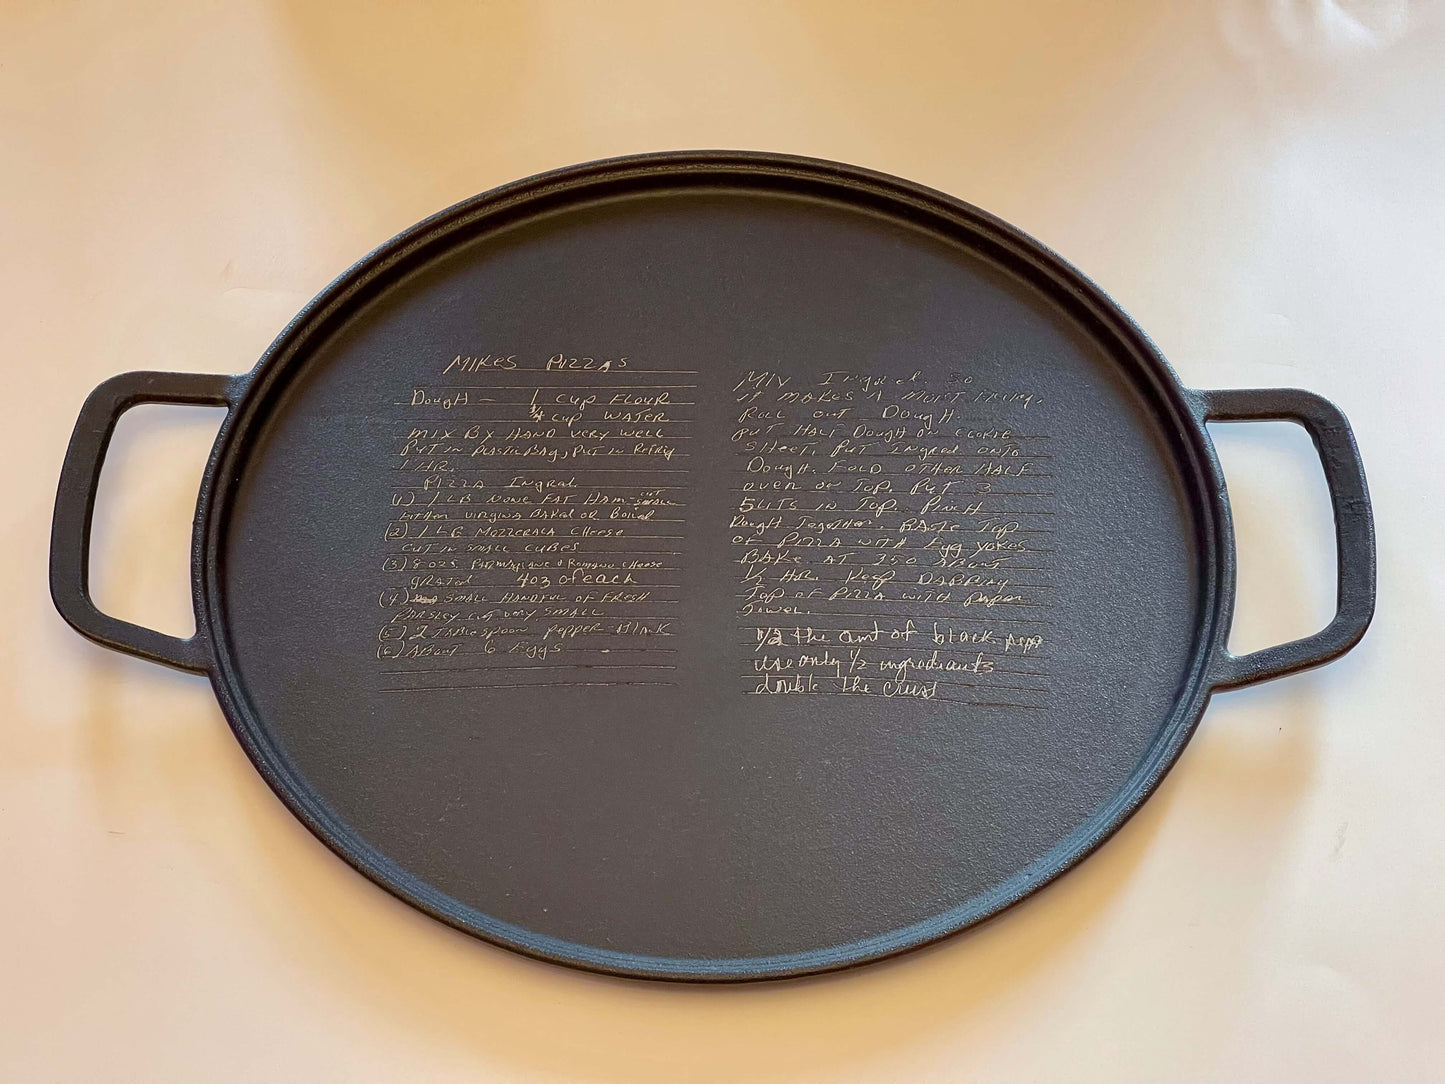 MIKES PIZZAS
DougH — 1 cup FLOUR
1/4 cup WATER
MIX BY HAND VERY WELL
PUT IN PLASTIC BAG, PUT IN REFRIG
1 HR.
PIZZA Ingred.
(1) 1 LB NONE FAT HAM - CUT SMALL
EITHER VIRGINA BAKED OR BOILED
(2) 1 LB MOZZERALA CHEESE
CUT IN SMALL CUBES
(3) 8 OZS. PARMAGIANE & ROMANO CHEESE
gRATED 4oz of each
(4) SMALL HANDFUL OF FRESH
PARSLEY CUT VERY SMALL
(5) 2 TABLESPOON pepper-BLACK
(6) ABOUT 6 Eggs
Mix Ingred. so
it MAKES A MOIST FILLING.
ROLL OUT DougH.
PUT HALF DougH ON COOKIE
SHEET, PUT INgred ONTO
DougH. FOLD OTHER HALF
OVER ON TOP. PUT 3
SLITS IN TOP. PINCH
DougH TogetHer. BASTE TOP
OF PIZZA WITH Egg YOKES
BAKE AT 350 ABOUT
1/2 HR. Keep DABBING
TOP OF PIZZA WITH PApeR
TOWEL.
1/2 the amt of black pepp
use only 1/2 ingrediants
double the crust